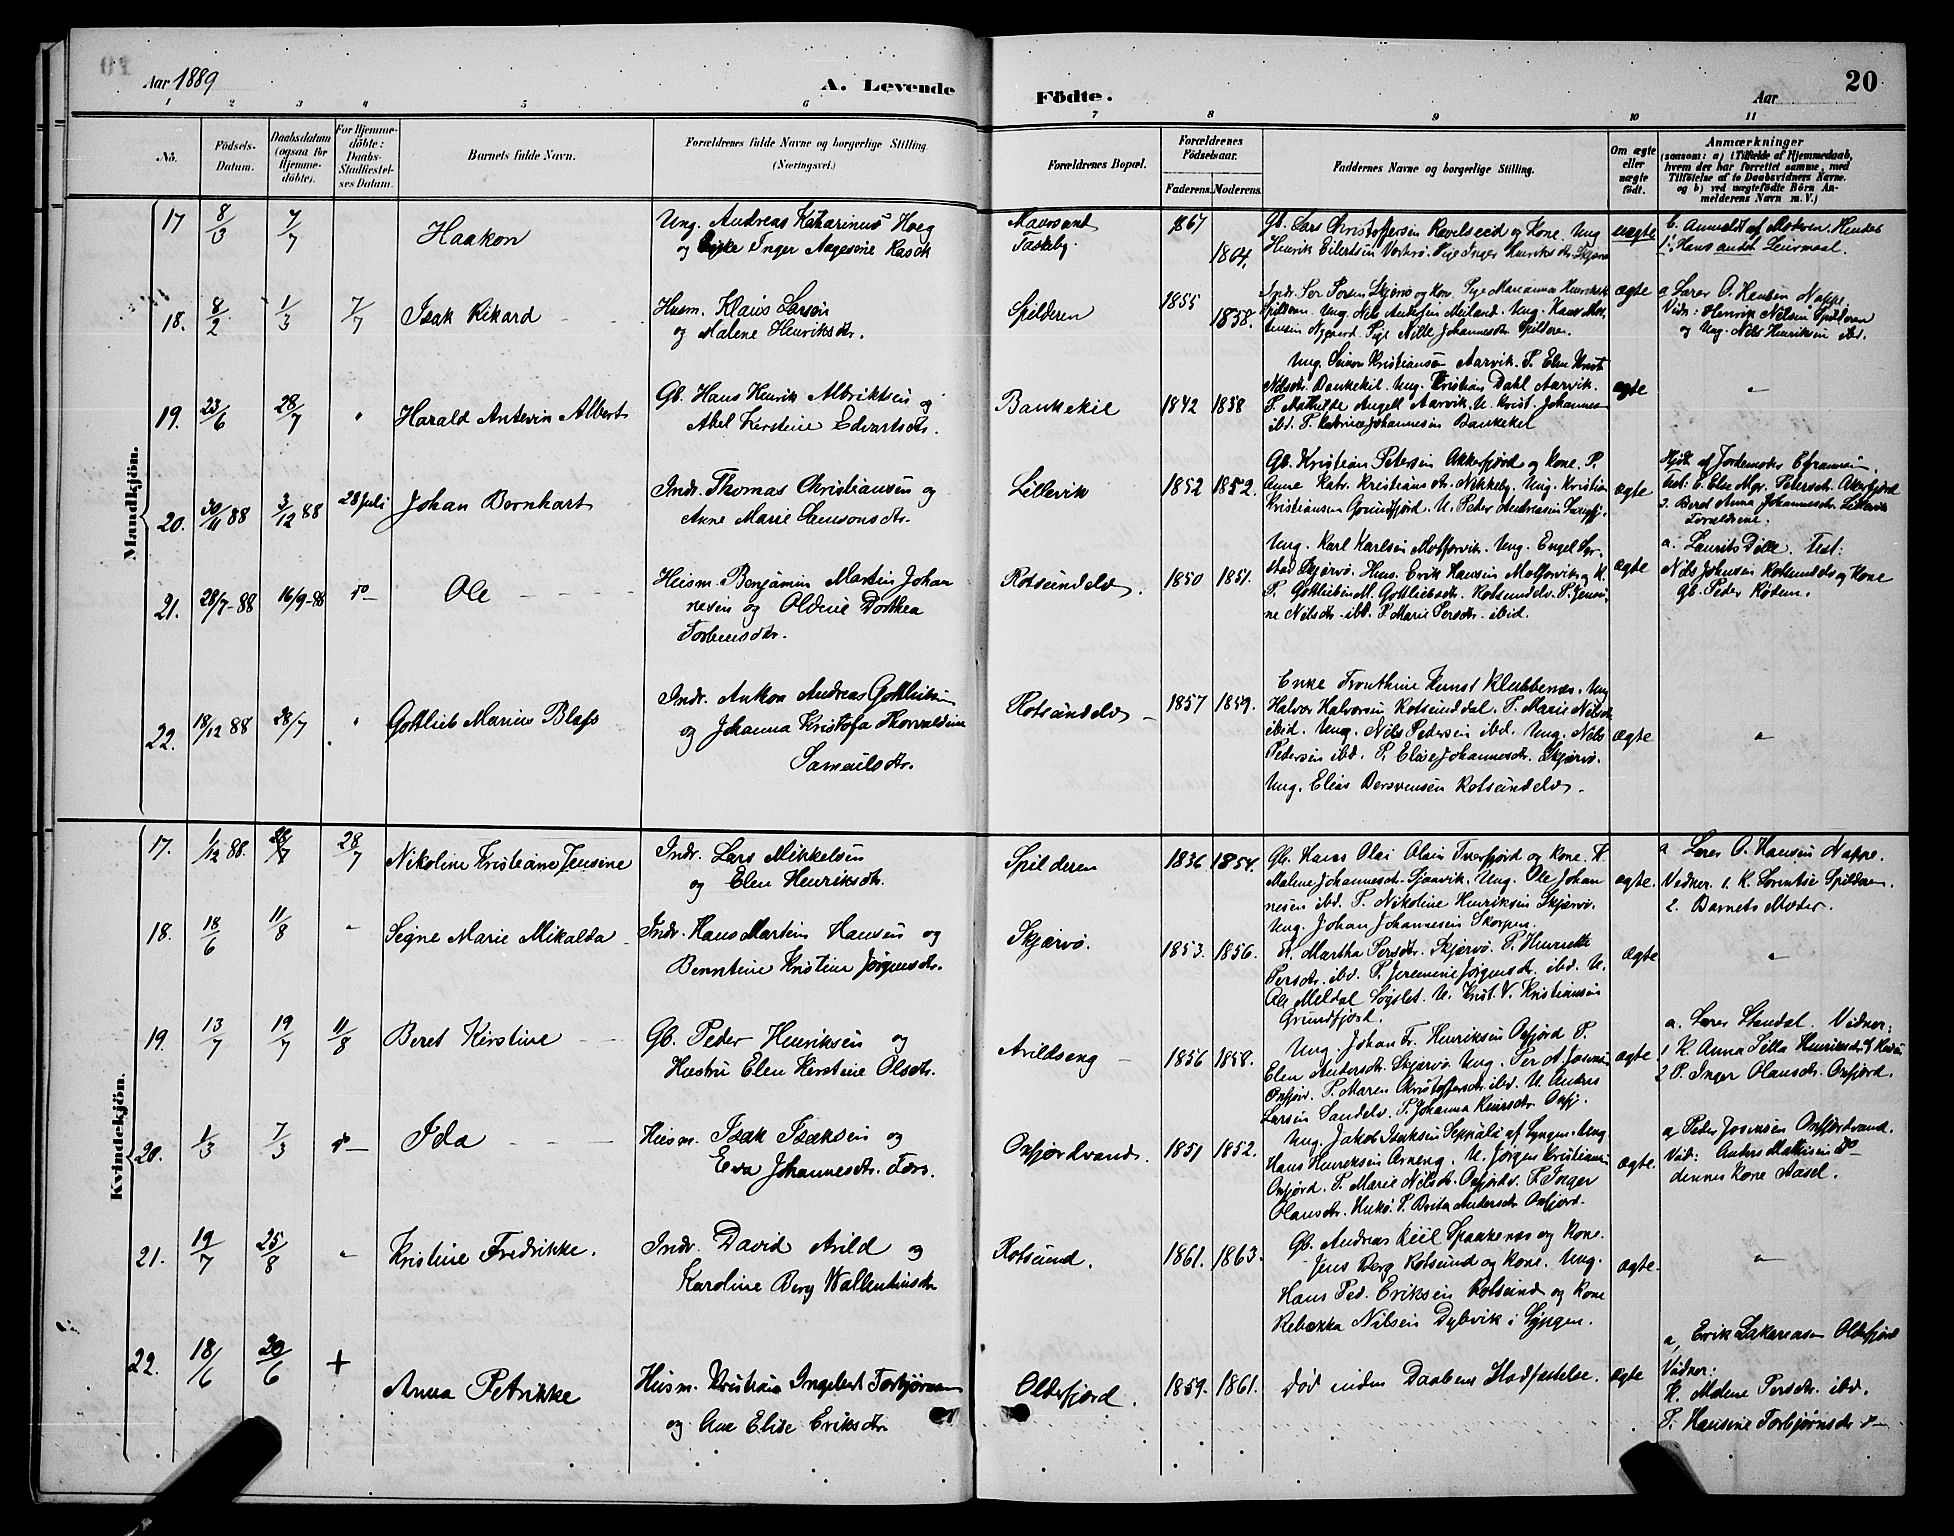 Aar 1889
A. Levende Födte.
Aar
20
1 2 3 4 5 6 7 8 9 10 11
No.
Födsels-Datum.
Daabsdatum (ogsaa for Hjemme-döbte).
For Hjemme-döbte: Daabs-Stadfæstel-ses Datum.
Barnets fulde Navn.
Forældrenes fulde Navne og borgerlige Stilling. (Næringsvei.)
Forældrenes Bopæl.
Forældrenes Födselsaar.
Faderens. Moderens.
Faddernes Navne og borgerlige Stilling.
Om ægte eller uægte födt.
Anmærkninger
(saasom: a) i Tilfælde af Hjemmedaab,
hvem der har forrettet samme, med
Tilföielse af to Daabsvidners Navne.
og b) ved uægtefödte Börn An-
melderens Navn m. V.)
Mandkjön.
17 8/3 7/7 Haakon
Ung. Andreas Katarinus Hoeg
og Pige Inger Aagesine Rasch
Maursund
1867 1864.
Gb. Lars Christoffersen Ravelseid og Kone. Ung
Henrik Eilertsen Vortrø. Pige Inger Henriksdtr. Skjærvø
uægte
b. Anmeldt af Moderen. Hendes
1ste Hans andet Leiermaal.
18. 8/2 1/3 7/7 Isak Rikard
Husm. Klaus Larsen
og Malene Henriksdtr.
Spilderen
1855 1858.
Spilderen. Ung. Nils Antonsen Meiland. Ung. Hans Mor-
tensen Nygaard. Pige Nille Johannesdtr Spilderen.
ægte
a Lærer O. Hansen Nappe.
Vidn: Henrik Nilsen Spilderen
og Ung. Nils Henriksen ibd.
19. 23/6 28/7 " Harald Antevin Albert
Gb. Hans Henrik Albriktsen og
Abel Kirstine Edvartsdtr.
Bankekeil
1842 1858
Ung. Simon Kristiansen Aarvik. P. Elen Krist
Nilsdtr. Bankekeil. Ung. Kristian Dahl Aarvik.
P. Mathilde Angell Aarvik. U. Krist. Johannes
ibd. P. Katrine Johannesen Bankekeil
ægte
"
20. 30/11 88 3/12 88 28 Juli Johan Bernhart
Indr. Thomas Christiansen og
Anne Marie Samsonsdtr.
Lillevik
1852 1852.
Gb. Kristian Petersen Akkarfjord og Kone. P.
Anne Katr. Kristiansdtr. Nikkeby. Ung. Kristian
Kristiansen Grundfjord. U. Peder Andreasen
ægte
Hjdt. af Jordemoder Efraimsen.
Test: 1. Elen Mgr. Petersdtr. Akkarfjord
2. Beret Anna Johannesdtr. Lillevik
Forældrene.
21. 28/7-88 16/9-88 do Ole
Husm. Benjamin Martin Johan
nesen og Oldine Dorthea
Torbensdtr.
Rotsundelv.
1850 1851.
Ung. Karl Karlsen Molforvik. Ung. Engel
Skjærvø. Hus. Erik Hansen Molforvik og K.
P. Gottliebine M. Gottliebsdtr. Rotsundelv. P. Jensi-
ne Nilsdtr ibd. P. Marie Persdtr. ibid.
ægte
a. Laurits Dille Test:
Nils Johnsen Rotsundelv og Kone
Gb. Peder Rödem.
22. 18/12 88 28/7 " Gottlieb Marius Blass
Indr. Anton Andreas Gottliebsen
og Johanna Kristofa Thorvaldine
Samuelsdtr.
Rotsundelv
1857 1859.
Enke Fronthine Kunst Klubbenæs. Ung
Halvor Halvorsen Rotsunddal. P. Marie Nilsdtr
ibid. Ung. Nils Pedersen ibd. Ung. Nils
Pedersen ibd. P. Elise Johannesdtr. Skjærvø.
Ung. Elias Bersvensen Rotsundelv.
ægte
"
Kvindekjön.
17. 1/12 88. 28/7 28/7 Nikoline Kristiane Jensine
Indr. Lars Mikkelsen
og Elen Henriksdtr.
Spilderen
1836 1854.
Gb. Hans Olai Olsen Tverfjord og Kone. K.
Malene Johannesdtr. Sjaavik. Ung. Ole Johan
nesen ibd. P. Nikoline Henriksen Skjærvø.
Ung. Johan Johannesen Skorpen.
ægte.
a Lærer O. Hansen Nappe.
Vidner. 1. K. Lorentse Spilderen.
2. Barnets Moder.
18. 18/6 11/8 " Signe Marie Mikalda
Indr. Hans Martin Hansen og
Berntine Kristine Jörgensdtr.
Skjærvø.
1853. 1856.
K. Martha Persdtr. Skjærvø. P. Henriette
Persdtr. ibd. P. Jeremine Jörgensdtr. ibd. U.
Ole Meldal Løgslet. U. Krist. V. Kristiansen
Grundfjord.
ægte
"
19. 13/7 19/7 11/8 Beret Kirstine
Gb. Peder Henriksen og
Hustru Elen Kirstine Olsdtr.
Arildseng
1856 1858.
Ung. Johan Fr. Henriksen Oxfjord P.
Elen Andersdtr. Skjærvø. Ung. Per A. Josensen
Oxfjord. P. Maren Christoffersdtr. ibd. U. Anders
Larsen Sandelv. P. Johanna Oxfj.
ægte.
a. Lærer Standal. Vidner:
1 K. Anna Silla Henriksdtr.
2 P. Inger Olausdtr. Oxfjord.
20. 1/3 7/3 do Ida
Husm. Isak Isaksen og
Eva Johannesdtr. Fors.
Oxfjordvand.
1851 1852.
Ung. Jakob Isaksen Seppälä af Lyngen. Ung
Hans Henriksen Arneng. U. Jörgen Kristiansen
Oxfjord. P. Marie Nilsdtr. Oxfjordv. P. Inger
Olausdtr. Hukø. P. Brita Andersdtr Oxfjord.
ægte.
a, Peder Josensen Oxfjordvand.
Vid: Anders Mathisen do
dennes Kone Aasel.
21. 19/7 25/8 " Kristine Fredrikke.
Indr. David Arild og
Karoline Berg Wallentinsdtr
Rotsund.
1861. 1863.
Gb. Andreas Keil Spaakenæs og Kone.
Jens Berg Rotsund og Kone. Ung.
Hans Ped. Eriksen Rotsund og Kone
Rebekka Nilsen Dybvik i Lyngen.
ægte.
"
22. 18/6 20/6 + Anna Petrikke
Husm. Kristian Ingebert Torbjörnsen
og Ane Elise Eriksdtr.
Olderfjord.
1859. 1861.
Död inden Daabens Stadfæstelse.
ægte
a, Erik Zakariasen Olderfjord
Vidner:
K. Malene Persdtr. ibd.
P. Hansine Torbjörnsdtr do